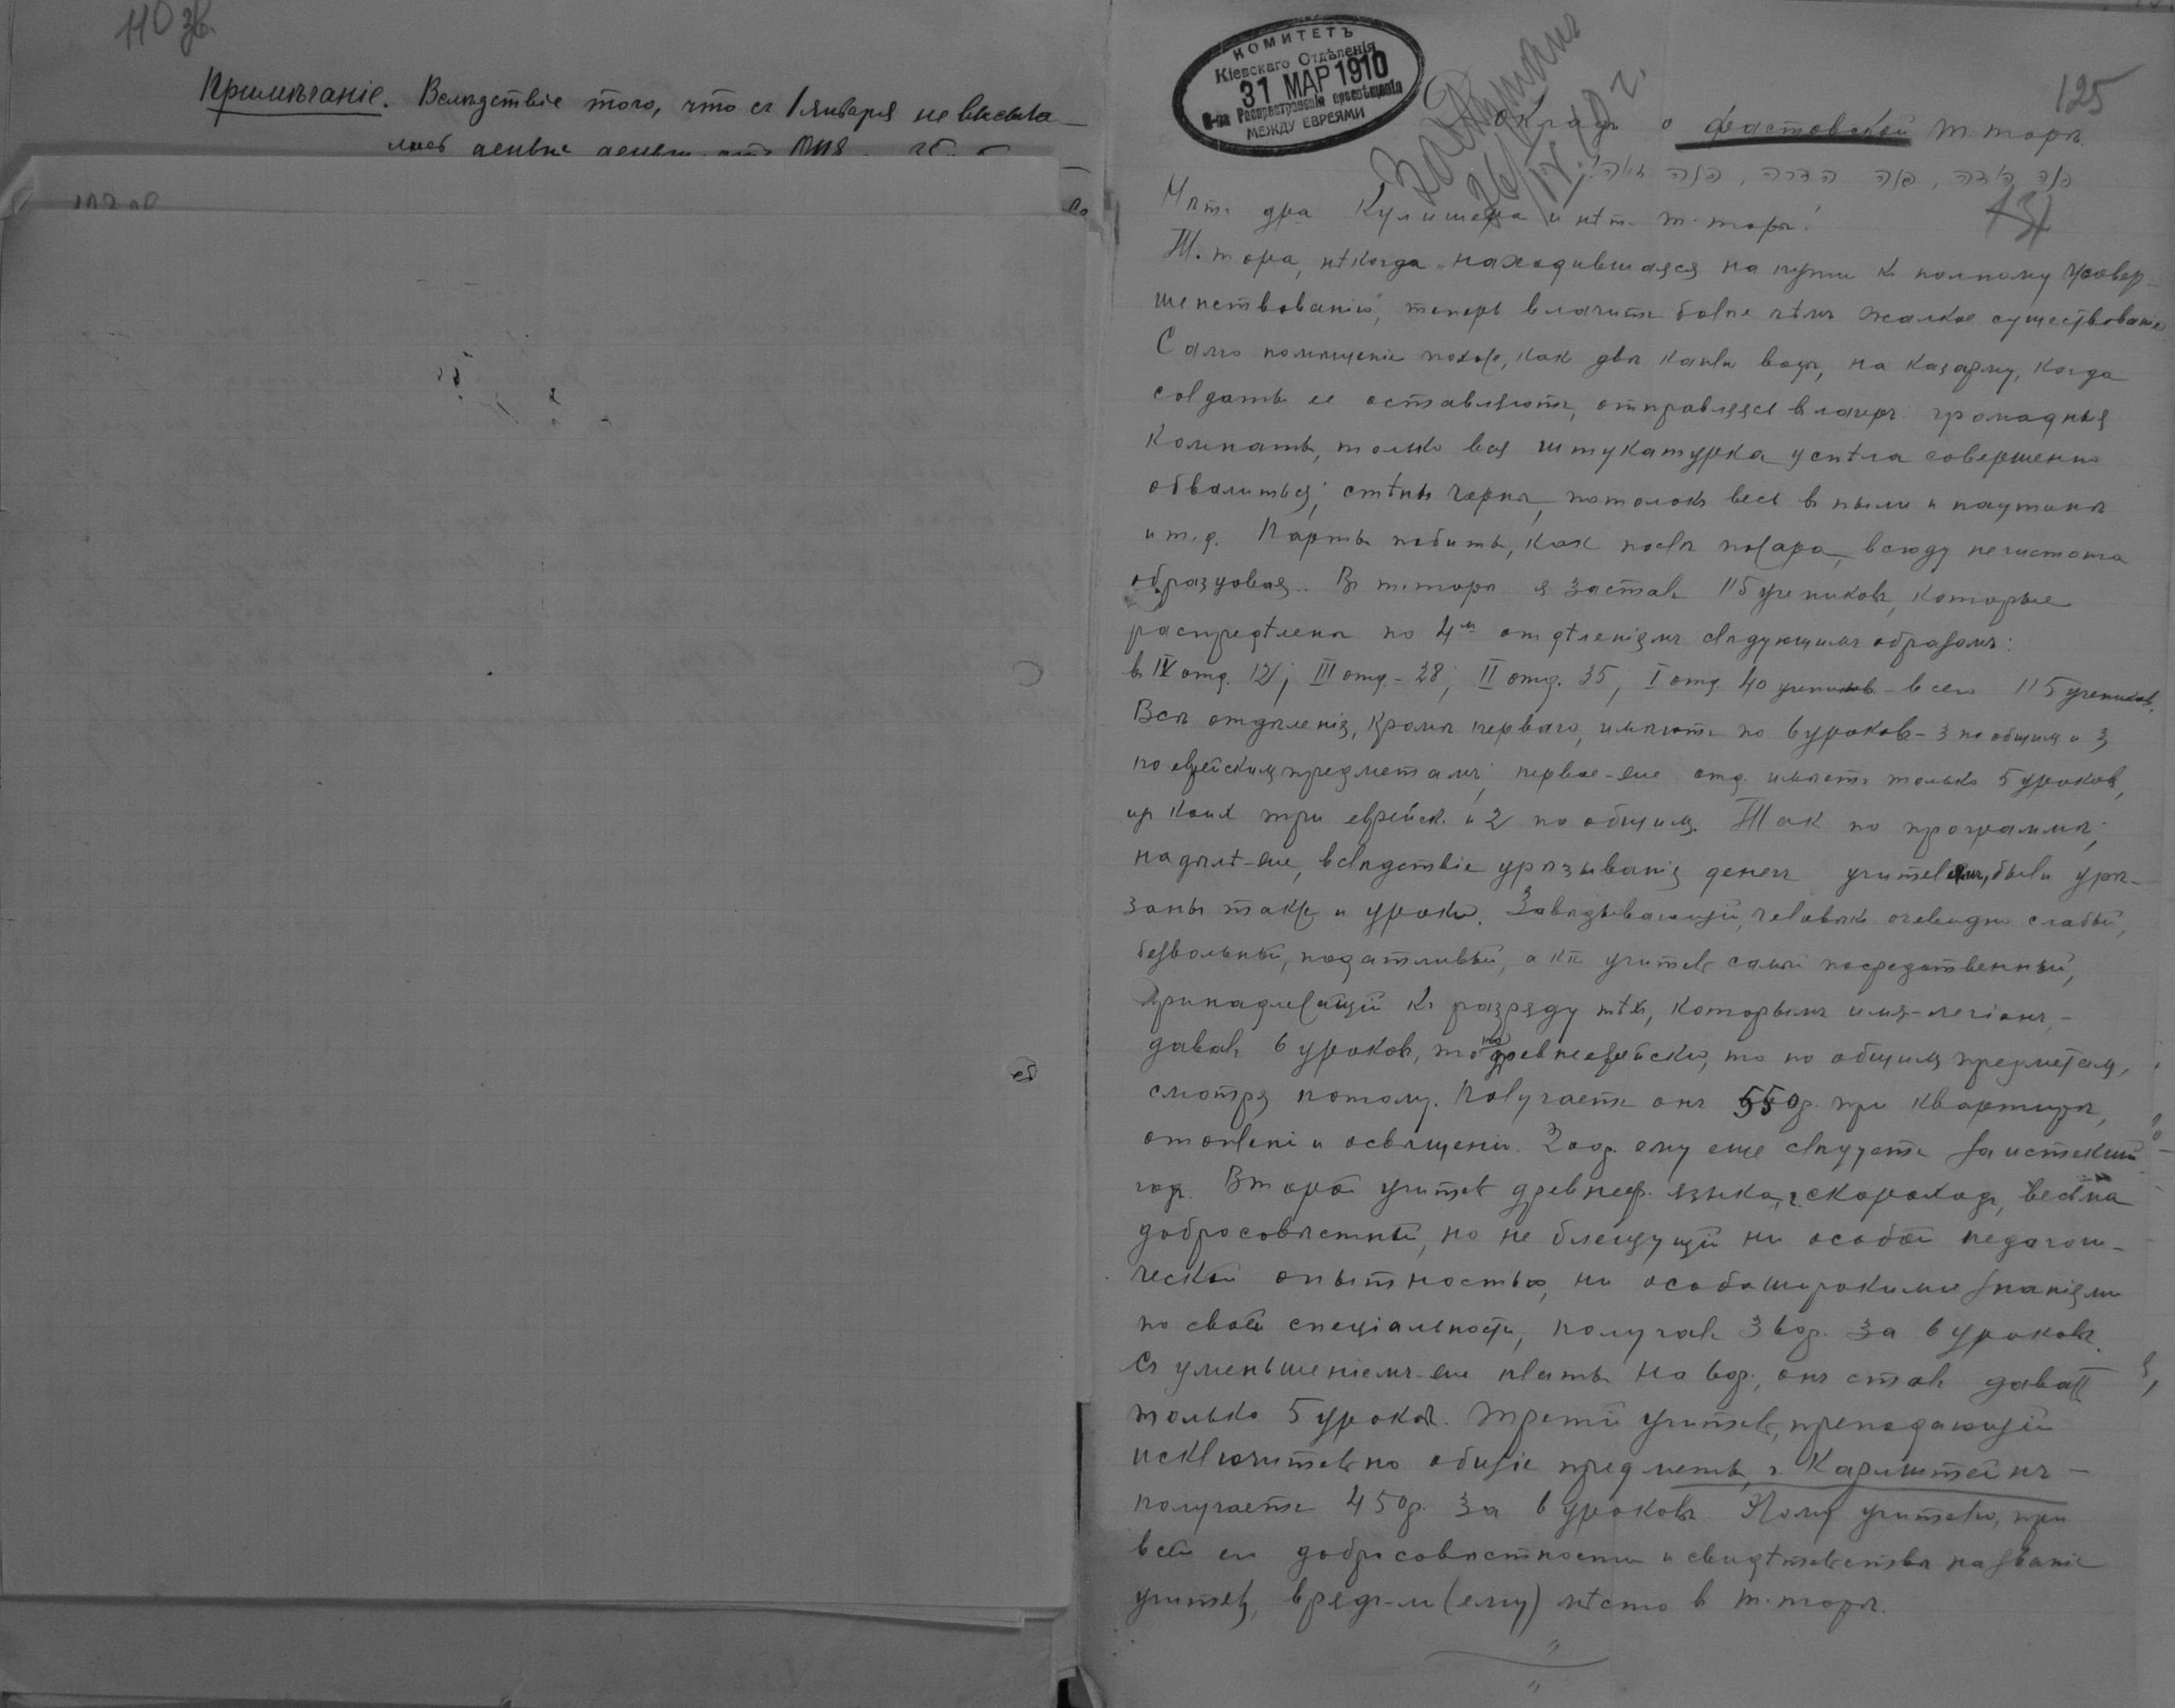 110 зв.
Примѣчаніе. Вслѣдствіе того, что съ 1 января не высыла-
лось
КОМИТЕТЪ
Кіевскаго Отдѣленія
31 МАР 1910
О-ва Распространенія просвѣщенія
МЕЖДУ ЕВРЕЯМИ
26/IV 10 г.
125
Докладъ о фастовской т. торѣ.
פנה הודה, פנה הדרה, פנה זיוה!
Нѣтъ д-ра Кулишера и нѣтъ т. торы!
Т. тора, нѣкогда „находившаяся на пути къ полному усовер-
шенствованію", теперь влачитъ болѣе чѣмъ жалкое существованіе.
Само помѣщеніе похоже, какъ двѣ капли воды, на казарму, когда
солдаты ее оставляютъ, отправляясь в лагерь: громадныя
комнаты, только вся штукатурка успѣла совершенно
обвалиться; стѣны черны, потолокъ весь в пыли и паутинѣ
и т. д. Парты побиты, как послѣ пожара, всюду нечистота
образцовая.. Въ т. торѣ я засталъ 115 учениковъ, которые
распредѣлены по 4м отдѣленіямъ слѣдующимъ образомъ:
в IV отд. 12; III отд - 28; II отд. 35, I отд 40 учениковъ - всего 115 учениковъ.
Всѣ отдѣленія, кромѣ перваго, имѣютъ по 6 уроковъ - 3 по общимъ и 3
по еврейскимъ предметамъ; первое-же отд. имѣетъ только 5 уроковъ,
из коихъ три еврейск. и 2 по общимъ. Такъ по программѣ;
на дѣлѣ-же, вслѣдствіе урѣзыванія денегъ учителямъ, были урѣ-
заны также и уроки. Завѣдывающій, человѣкъ очевидно слабый,
безвольный, податливый, а какъ учитель самый посредственный,
принадлежащій къ разряду тѣхъ, которымъ имя-легіонъ, -
давалъ 6 уроковъ, то по древнееврейски, то по общимъ предметамъ,
смотря потому. Получаетъ онъ 550 р. при квартирѣ,
отопленіи и освѣщеніи. 200 р. ему еще слѣдуетъ за истекшій
годъ. Второй учитель древнеевр. языка, г. Скороходъ, весьма
добросовѣстный, но не блещущій ни особой педагоги-
ческой опытностью, ни особо широкими знаніями
по своей спеціальности, получалъ 360 р. за 6 уроковъ.
Съ уменьшеніемъ-же платы на 60 р., онъ сталъ давать
только 5 уроковъ. Третій учитель, преподающій
исключительно общіе предметы, г. Карлштейнъ -
получаетъ 450 р. за 6 уроковъ. Этому учителю, при
всей его добросовѣстности и свидѣтельствѣ на званіе
учителя, врядъ-ли (ему) мѣсто в т. торѣ.